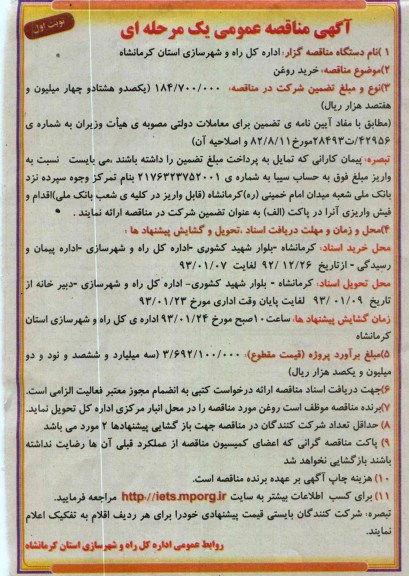 نوبت اول
آگهی مناقصه عمومی یک مرحله ای
۱)نام دستگاه مناقصه گزار: اداره کل راه و شهرسازی استان کرمانشاه
۲)موضوع مناقصه: خرید روغن
۳)نوع و مبلغ تضمین شرکت در مناقصه: ۱۸۴/۷۰۰/۰۰۰ (یکصدو هشتادو چهار میلیون و
هفتصد هزار ریال)
(مطابق با مفاد آیین نامه ی تضمین برای معاملات دولتی مصوبه ی هیأت وزیران به شماره ی
۴۲۹۵۶/ت۲۸۴۹۳مورخ۸۲/۸/۱۱ و اصلاحیه آن)
تبصره: پیمان کارانی که تمایل به پرداخت مبلغ تضمین را داشته باشند ،می بایست نسبت به
واریز مبلغ فوق به حساب سیبا به شماره ی ۲۱۷۶۳۲۳۷۵۲۰۰۱ بنام تمرکز وجوه سپرده نزد
بانک ملی شعبه میدان امام خمینی (ره)کرمانشاه (قابل واریز در کلیه ی شعب بانک ملی)اقدام و
فیش واریزی آنرا در پاکت (الف) به عنوان تضمین شرکت در مناقصه ارائه نمایند .
۴)محل و زمان و مهلت دریافت اسناد ،تحویل و گشایش پیشنهاد ها :
محل خرید اسناد: کرمانشاه -بلوار شهید کشوری -اداره کل راه و شهرسازی -اداره پیمان و
رسیدگی - ازتاریخ ۹۲/ ۱۲/۲۶ لغایت ۹۳/۰۱/۰۷
محل تحویل اسناد: کرمانشاه - بلوار شهید کشوری- اداره کل راه و شهرسازی -دبیر خانه از
تاریخ ۹۳/ ۰۱/۰۹ لغایت پایان وقت اداری مورخ ۹۳/۰۱/۲۳
زمان گشایش پیشنهاد ها: ساعت ۱۰صبح مورخ ۹۳/۰۱/۲۴ اداره ی کل راه و شهرسازی استان
کرمانشاه
۵)مبلغ برآورد پروژه (قیمت مقطوع): ۳/۶۹۲/۱۰۰/۰۰۰ (سه میلیارد و ششصد و نود و دو
میلیون و یکصد هزار ریال)
۶)جهت دریافت اسناد مناقصه ارائه درخواست کتبی به انضمام مجوز معتبر فعالیت الزامی است.
۷)برنده مناقصه موظف است روغن مورد مناقصه را در محل انبار مرکزی اداره کل تحویل نماید.
۸) حداقل تعداد شرکت کنندگان در مناقصه جهت باز گشایی پیشنهادها ۲ مورد می باشد
۹) پاکت مناقصه گرانی که اعضای کمیسیون مناقصه از عملکرد قبلی آن ها رضایت نداشته
باشند بازگشایی نخواهد شد
۱۰) هزینه چاپ آگهی بر عهده برنده مناقصه است.
۱۱) برای کسب اطلاعات بیشتر به سایت http://iets.mporg.ir مراجعه فرمایید.
تبصره: شرکت کنندگان بایستی قیمت پیشنهادی خودرا برای هر ردیف اقلام به تفکیک اعلام
نمایند.
روابط عمومی اداره کل راه و شهرسازی استان کرمانشاه